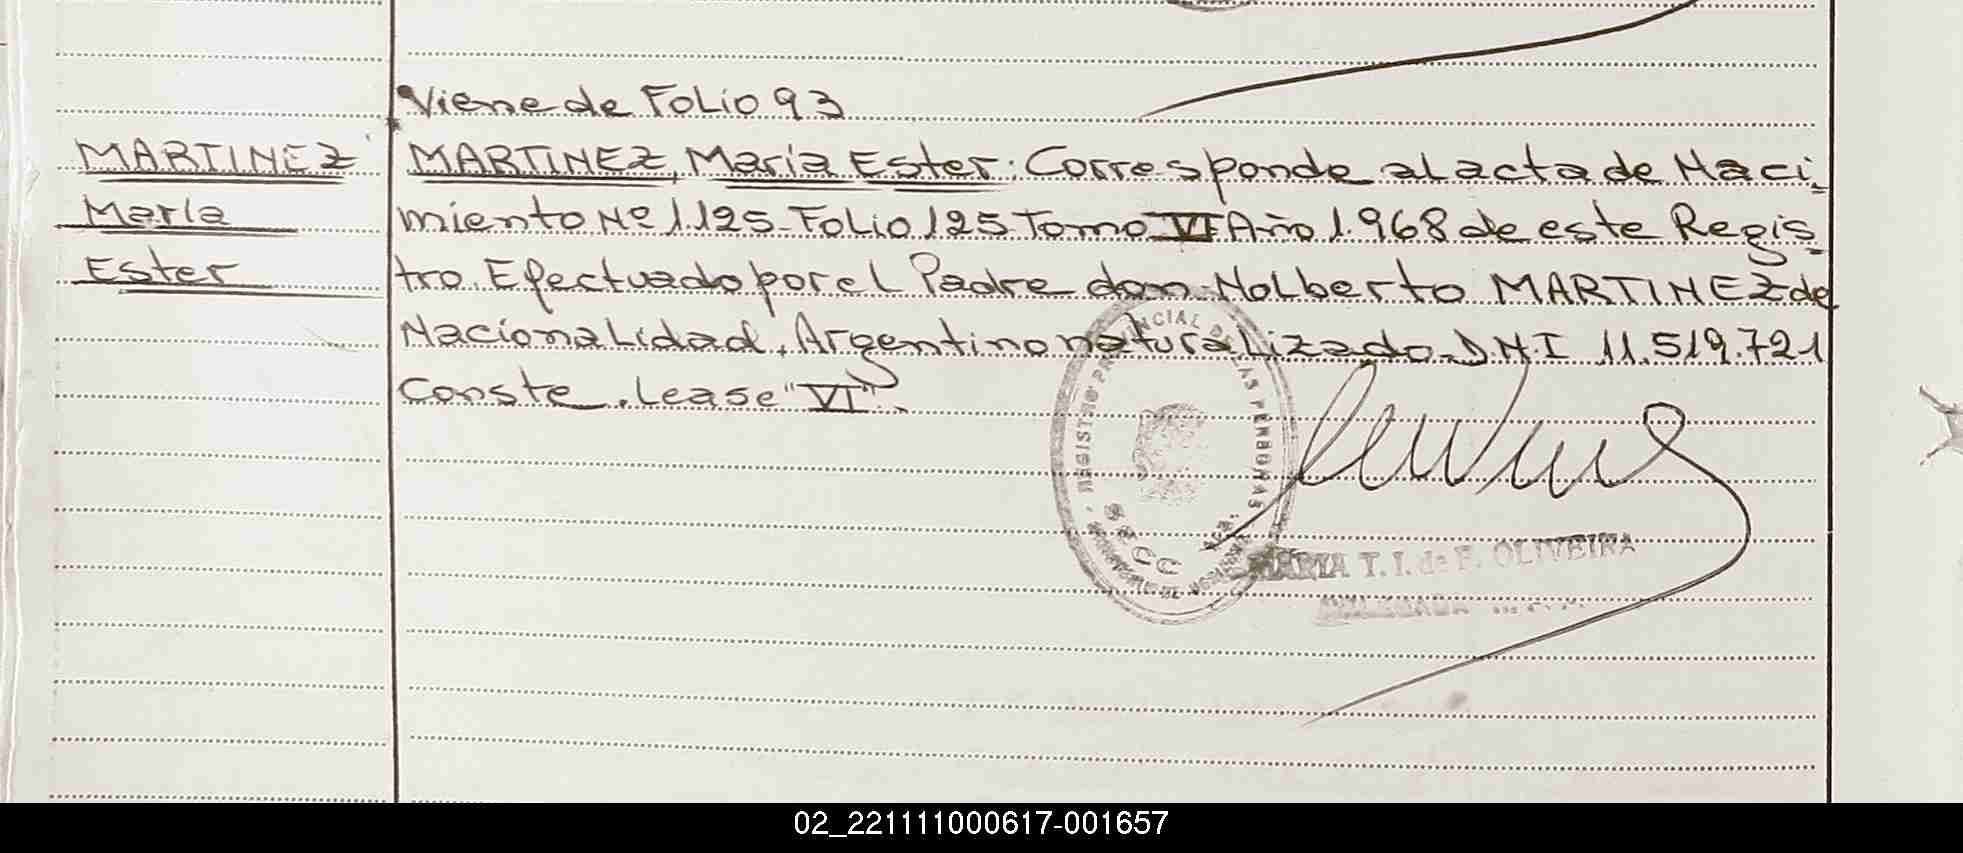 Viene de Folio 93
MARTINEZ
María
Ester
MARTINEZ, María Ester: Corresponde al acta de Naci-
miento Nº 1.125-Folio 125 Tomo VI Año 1.968 de este Regis-
tro. Efectuado por el Padre don Nolberto MARTINEZ de
Nacionalidad, Argentino naturalizado-DNI 11.519.721
Conste. Lease "VI".
REGISTRO PROVINCIAL DE LAS PERSONAS
SECC
MARIA T. I. de F. OLIVEIRA
02_221111000617-001657